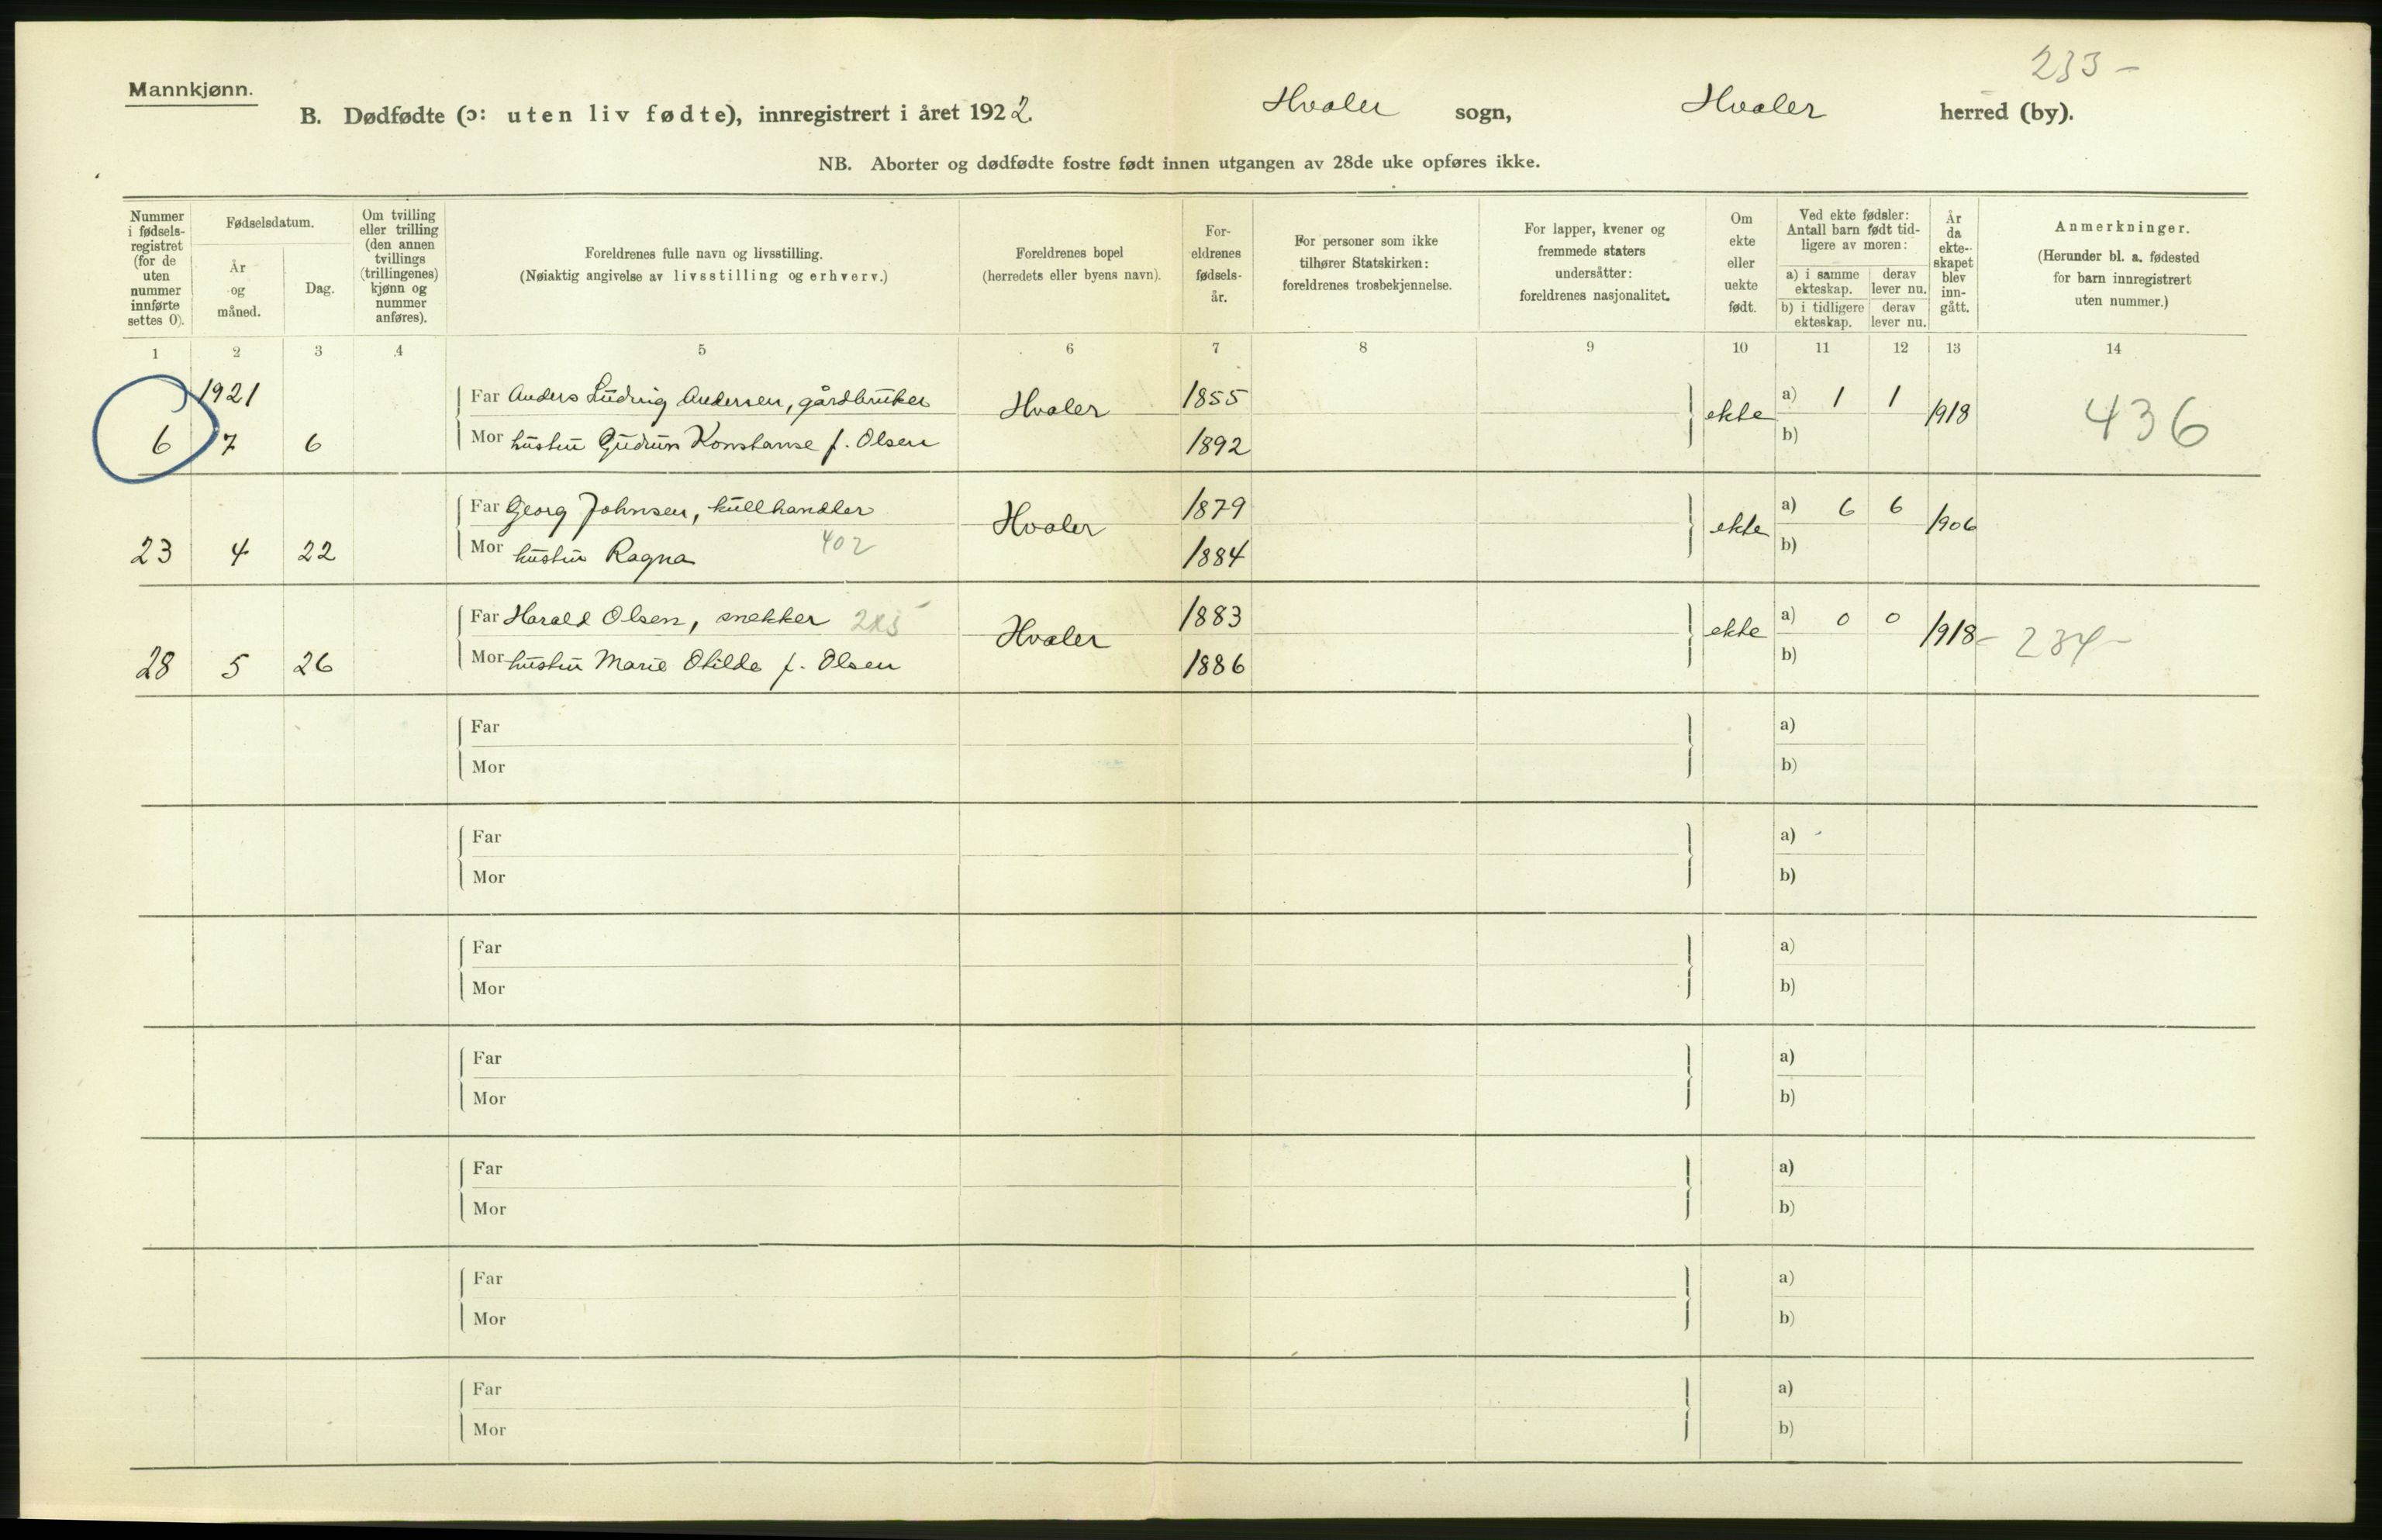 233 -
Mannkjønn.
B. Dødfødte (ɔ: uten liv fødte), innregistrert i året 1922. Hvaler sogn, Hvaler herred (by).
NB. Aborter og dødfødte fostre født innen utgangen av 28de uke opføres ikke.
Nummer i fødsels-registret (for de uten nummer innførte settes 0).
Fødselsdatum.
År og måned.
Dag.
Om tvilling eller trilling (den annen tvillings (trillingenes) kjønn og nummer anføres).
Foreldrenes fulle navn og livsstilling.
(Nøiaktig angivelse av livsstilling og erhverv.)
Foreldrenes bopel
(herredets eller byens navn).
For-eldrenes fødsels-år.
For personer som ikke tilhører Statskirken: foreldrenes trosbekjennelse.
For lapper, kvener og fremmede staters undersåtter: foreldrenes nasjonalitet.
Om ekte eller uekte født.
Ved ekte fødsler: Antall barn født tid-ligere av moren:
a) i samme ekteskap. derav lever nu.
b) i tidligere ekteskap. derav lever nu.
År da ekte-skapet blev inn-gått.
Anmerkninger.
(Herunder bl. a. fødested for barn innregistrert uten nummer.)
1 2 3 4 5 6 7 8 9 10 11 12 13 14
1921
Far Anders Ludvig Andersen, gårdbruker Hvaler 1855 ekte a) 1 1 1918 436
6 7 6 Mor hustru Gudrun Konstanse f. Olsen 1892 b)
Far Georg Johnsen, kullhandler Hvaler 1879 ekte a) 6 6 1906
23 4 22 Mor hustru Ragna 402 1884 b)
Far Harald Olsen, snekker Hvaler 1883 ekte a) 0 0 1918 - 234 -
28 5 26 Mor hustru Marie Otilde f. Olsen 1886 b)
Far a)
Mor b)
Far a)
Mor b)
Far a)
Mor b)
Far a)
Mor b)
Far a)
Mor b)
Far a)
Mor b)
Far a)
Mor b)